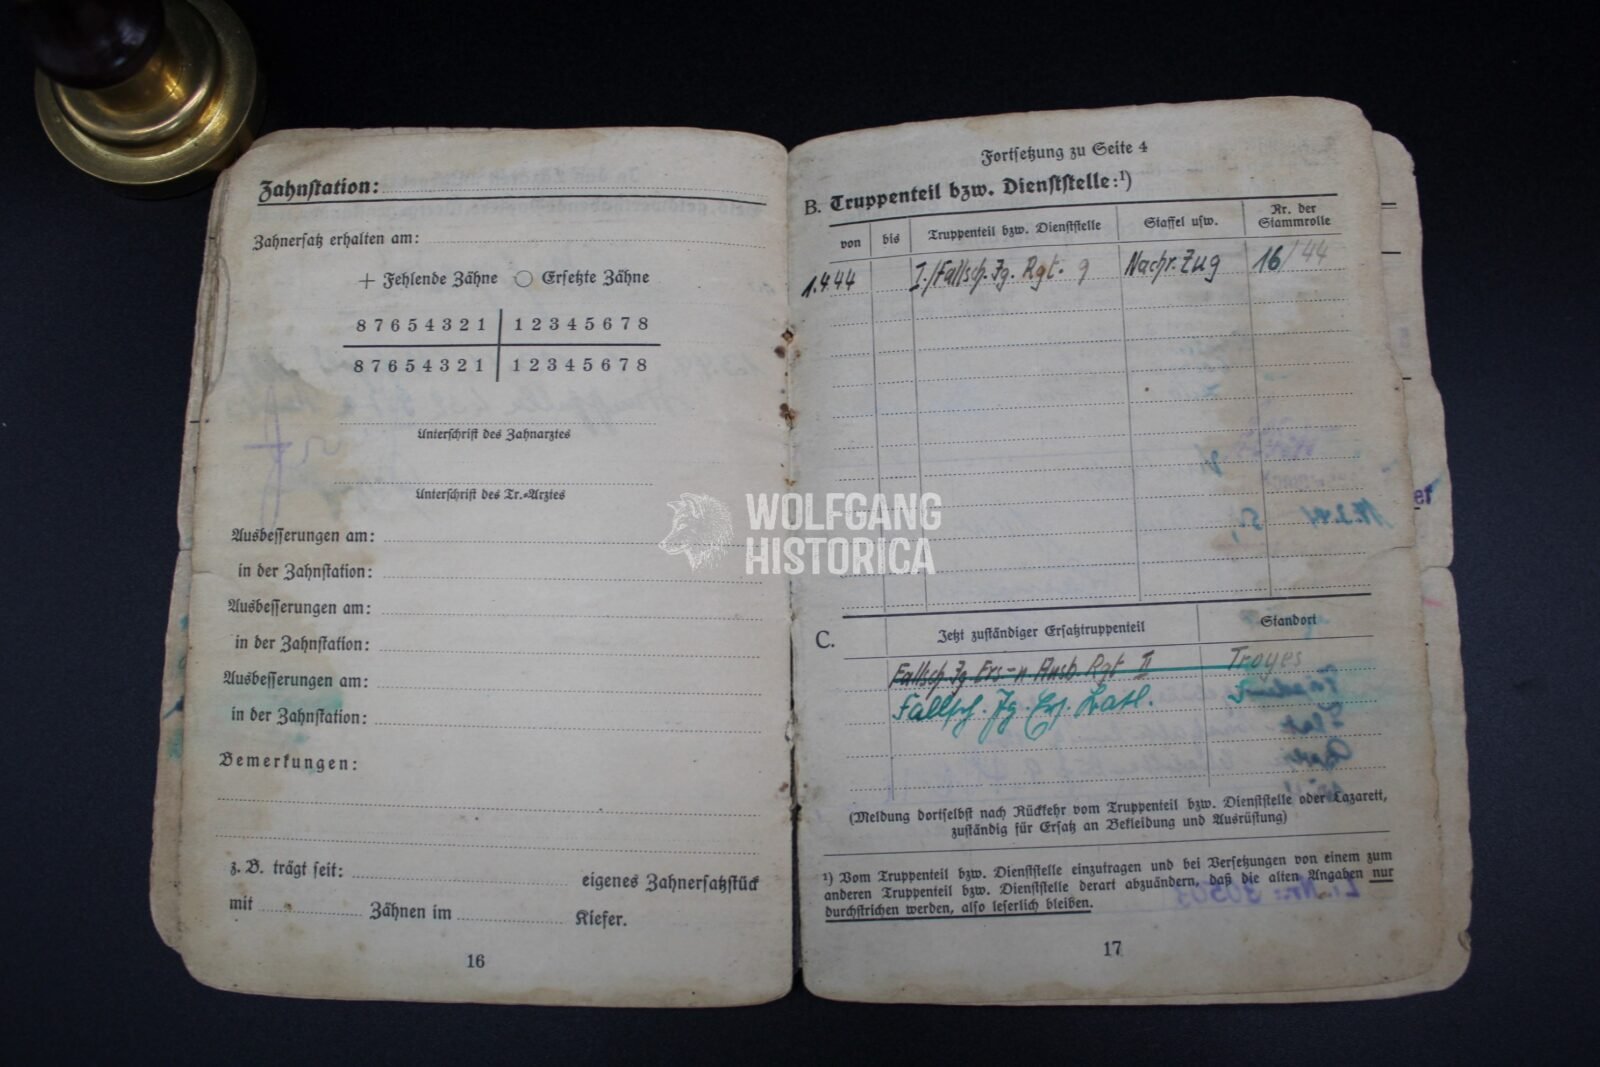 Zahnstation:
Zahnersatz erhalten am:
+ Fehlende Zähne ○ Ersetzte Zähne
8 7 6 5 4 3 2 1 | 1 2 3 4 5 6 7 8
8 7 6 5 4 3 2 1 | 1 2 3 4 5 6 7 8
Unterschrift des Zahnarztes
Unterschrift des Tr.-Arztes
Ausbesserungen am:
in der Zahnstation:
Ausbesserungen am:
in der Zahnstation:
Ausbesserungen am:
in der Zahnstation:
Bemerkungen:
z. B. trägt seit: eigenes Zahnersatzstück
mit Zähnen im Kiefer.
16
Fortsetzung zu Seite 4
B. Truppenteil bzw. Dienststelle:¹)
von bis Truppenteil bzw. Dienststelle Staffel usw. Nr. der Stammrolle
1.4.44 I./Fallsch. Jg. Rgt. 9 Nachr. Zug 16/44
C. Jetzt zuständiger Ersatztruppenteil Standort
Fallsch. Jg Ers- u Ausb. Rgt II Troyes
Fallsch. Jg. Ers. Batl.
(Meldung dortselbst nach Rückkehr vom Truppenteil bzw. Dienststelle oder Lazarett,
zuständig für Ersatz an Bekleidung und Ausrüstung)
¹) Vom Truppenteil bzw. Dienststelle einzutragen und bei Versetzungen von einem zum
anderen Truppenteil bzw. Dienststelle derart abzuändern, daß die alten Angaben nur
durchstrichen werden, also leserlich bleiben.
17
WOLFGANG
HISTORICA